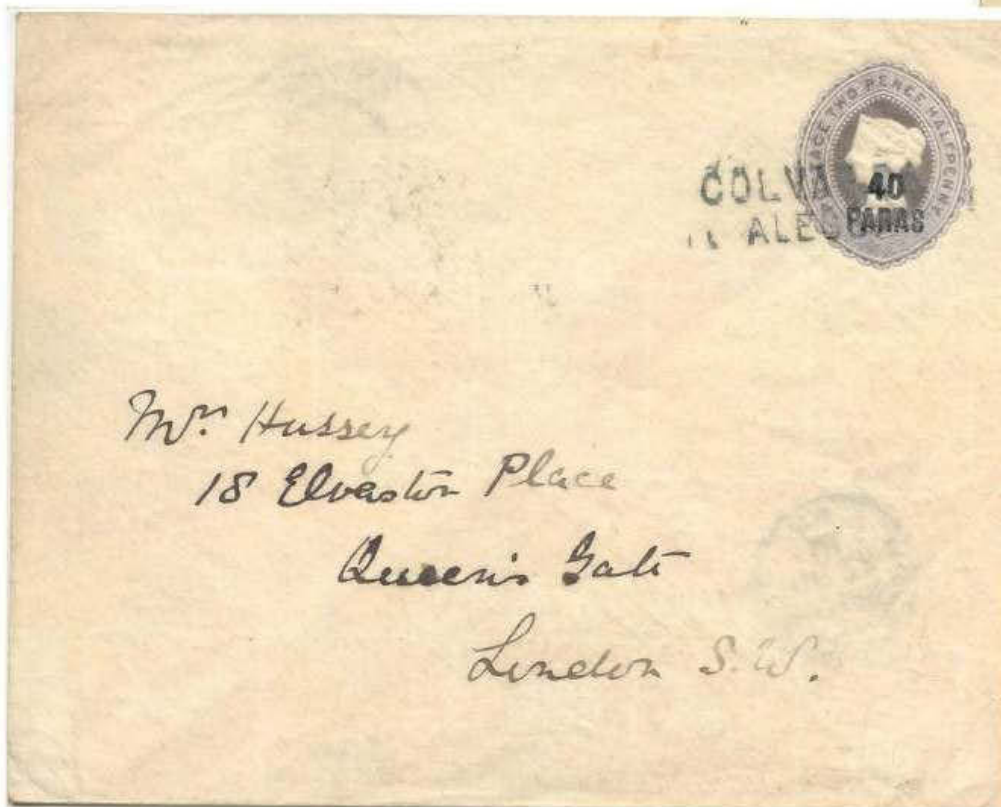 POSTAGE TWO PENCE HALFPENNY
40
PARAS
COLV
ALES
Mrs. Hussey
18 Elvaston Place
Queen's Gate
London S.W.